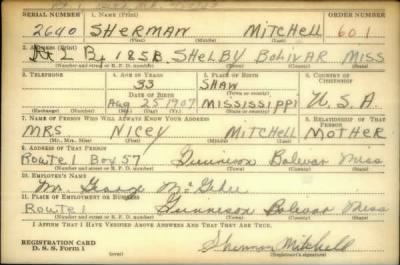 SERIAL NUMBER 1. NAME (Print) ORDER NUMBER
2690 SHERMAN MITCHELL 601
(First) (Middle) (Last)
2. ADDRESS (Print)
Rt 2 Bx 185B. SHELBY BOLIVAR MISS
(Number and street or R. F. D. number) (Town) (County) (State)
3. TELEPHONE 4. AGE IN YEARS 5. PLACE OF BIRTH 6. COUNTRY OF CITIZENSHIP
33 SHAW
DATE OF BIRTH (Town or county)
Aug 25 1907 MISSISSIPPI U.S.A
(Exchange) (Number) (Mo.) (Day) (Yr.) (State or country)
7. NAME OF PERSON WHO WILL ALWAYS KNOW YOUR ADDRESS 8. RELATIONSHIP OF THAT PERSON
MRS NICEY MITCHELL MOTHER
(Mr., Mrs., Miss) (First) (Middle) (Last)
9. ADDRESS OF THAT PERSON
Route 1 Box 57 Gunnison Bolivar Miss
(Number and street or R. F. D. number) (Town) (County) (State)
10. EMPLOYER'S NAME
Mr. George McGehee
11. PLACE OF EMPLOYMENT OR BUSINESS
Route 1 Gunnison Bolivar Miss
(Number and street or R. F. D. number) (Town) (County) (State)
I AFFIRM THAT I HAVE VERIFIED ABOVE ANSWERS AND THAT THEY ARE TRUE.
REGISTRATION CARD
D. S. S. Form 1 (over) Sherman Mitchell
(Registrant's signature)